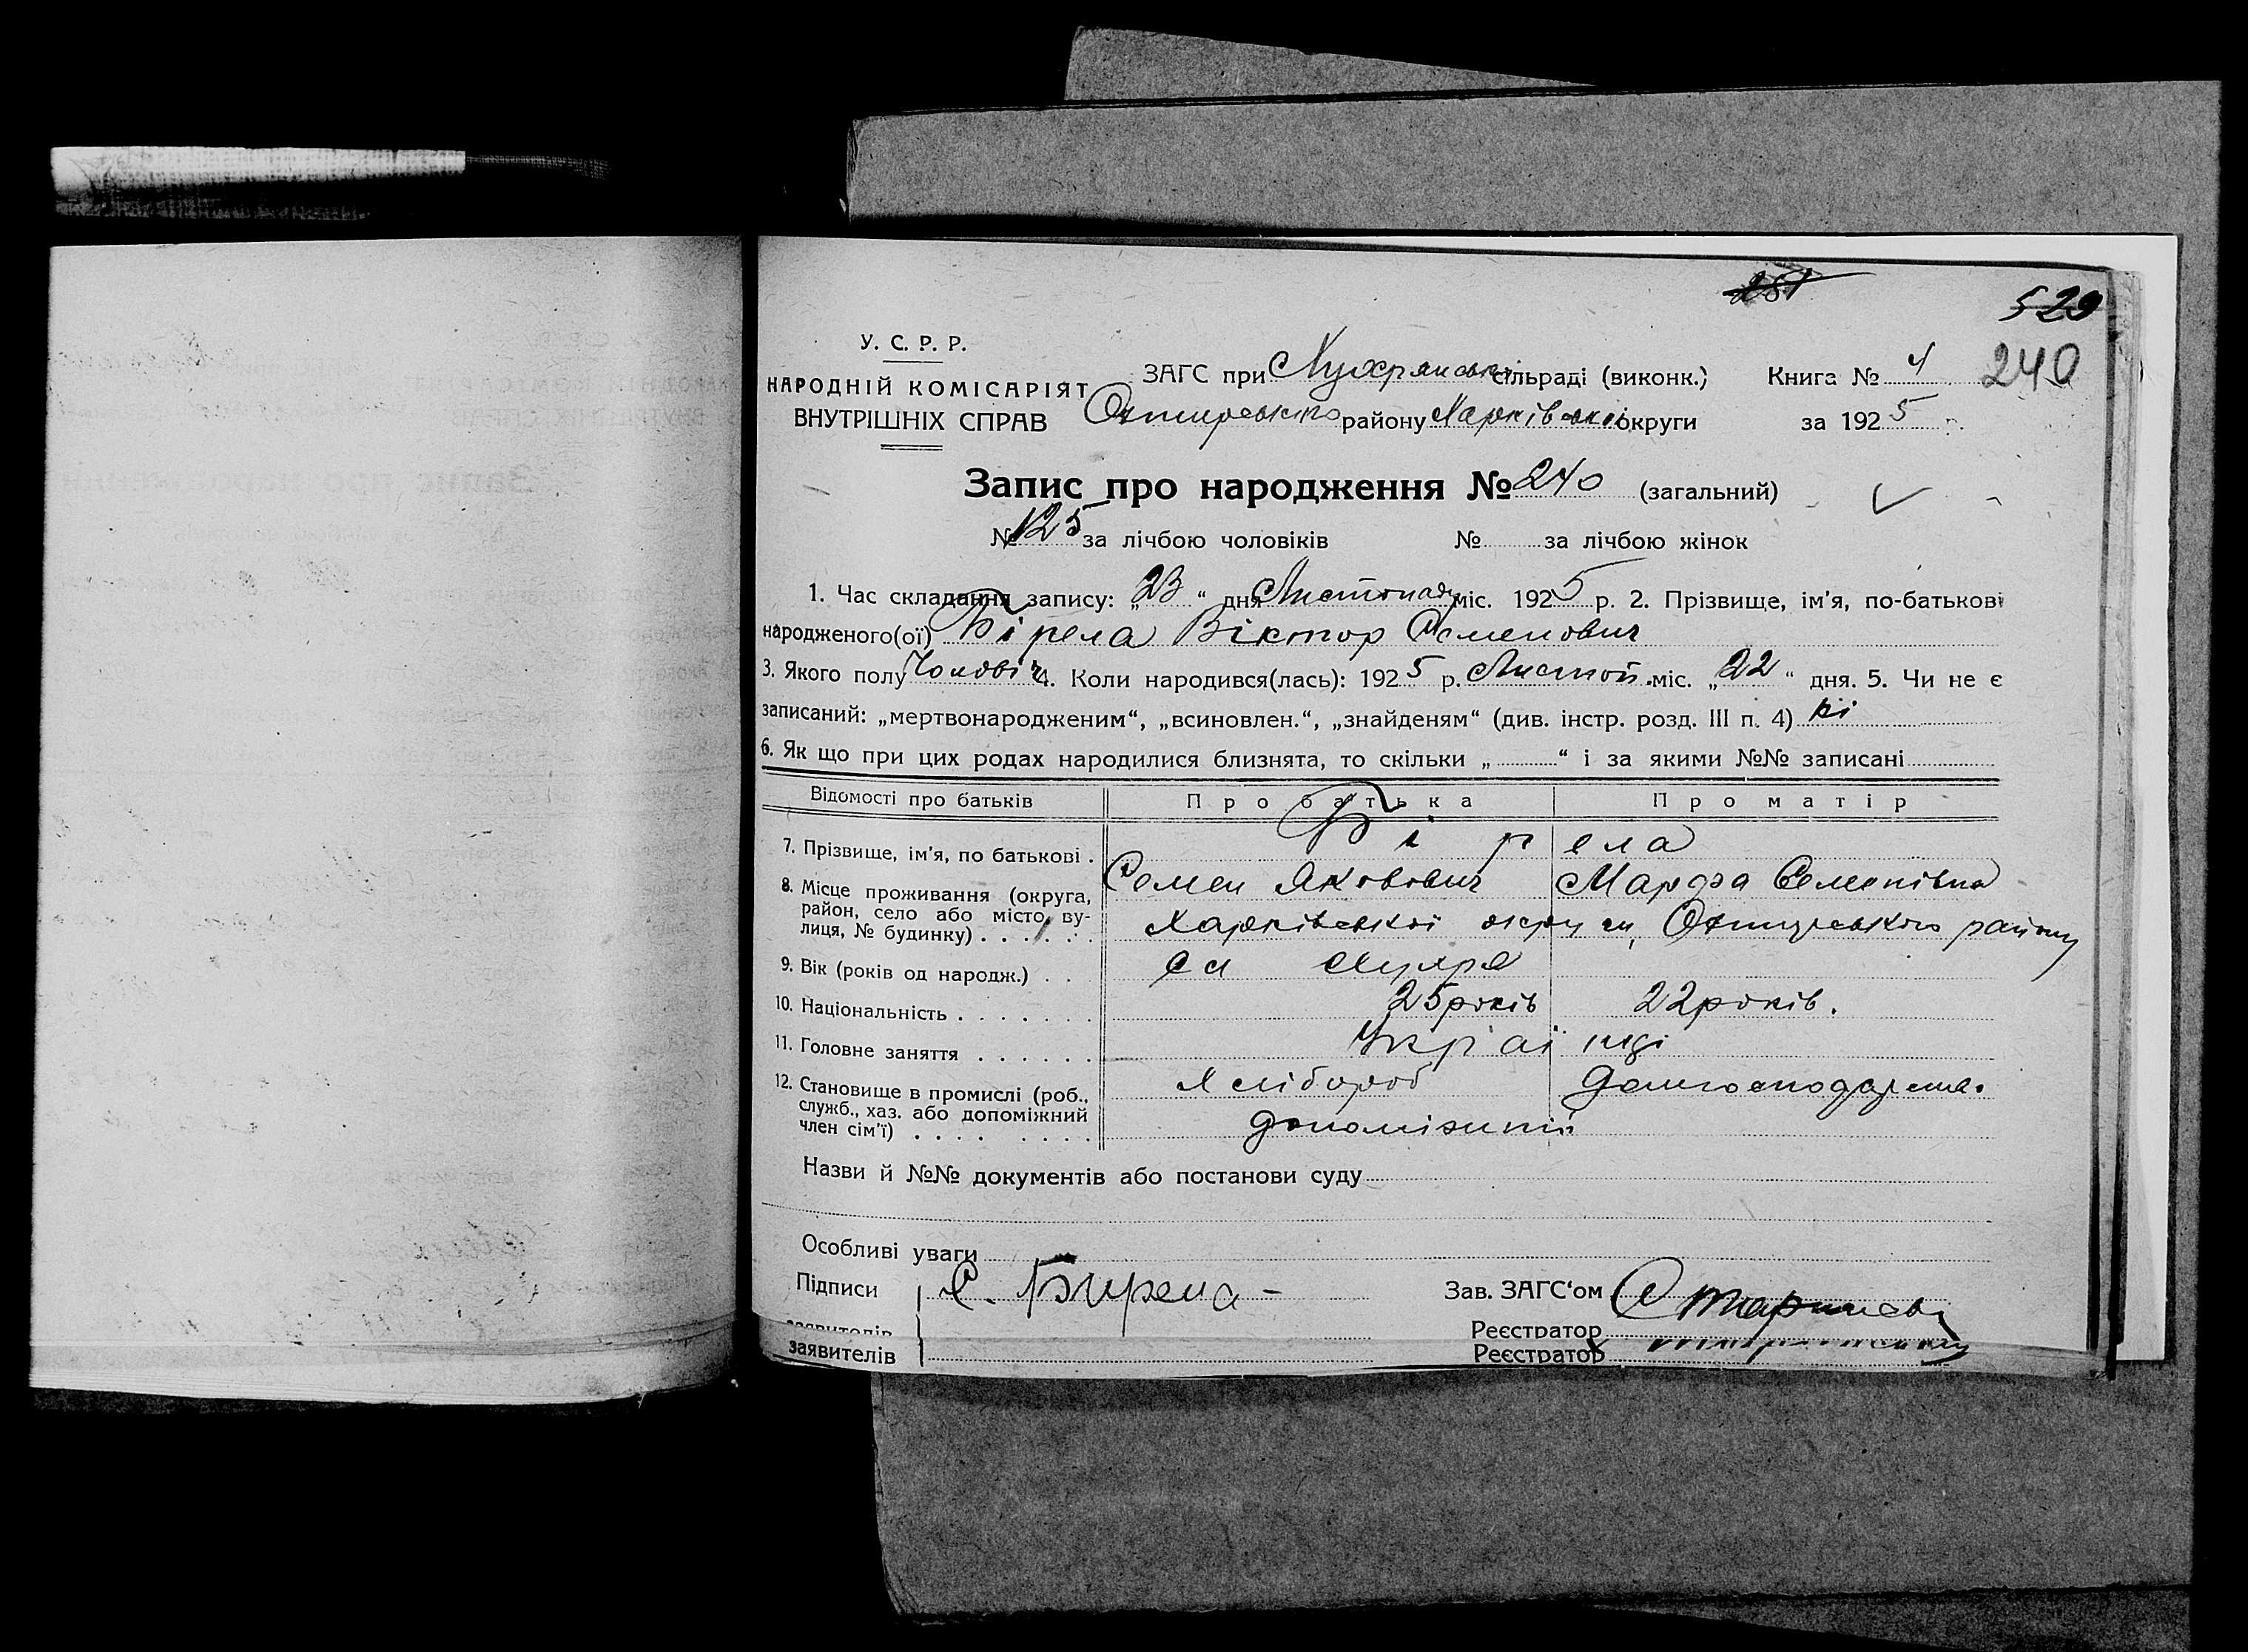 251
529
У. С. Р. Р.
НАРОДНІЙ КОМІСАРІЯТ
ВНУТРІШНІХ СПРАВ
ЗАГС при сільраді (виконк.) Книга № 4 240
району Харківської округи за 1925 р.
Запис про народження № 240 (загальний)
№ 125 за лічбою чоловіків № за лічбою жінок
1. Час складання запису: „23“ дня Листопаду міс. 1925 р. 2. Прізвище, ім'я, по-батькові
народженого(ої) Бірела Віктор Семенович
3. Якого полу Чоловіч 4. Коли народився(лась): 1925 р. Листоп. міс. „22“ дня. 5. Чи не є
записаний: „мертвонародженим“, „всиновлен.“, „знайденям“ (див. інстр. розд. III п. 4) ні
6. Як що при цих родах народилися близнята, то скільки „ “ і за якими №№ записані
Відомості про батьків Про батька Про матір
7. Прізвище, ім'я, по батькові . Бірела
Семен Яковович Марфа Семенівна
8. Місце проживання (округа, район, село або місто, вулиця, № будинку) . . . . . . Харківської округи, Охтирського району
9. Вік (років од народж.) . .
10. Національність . . . . . . . 25 років 22 років.
11. Головне заняття . . . . . . Україінці
12. Становище в промислі (роб., служб., хаз. або допоміжний член сім'ї) . . . . . . . . Хлібороб
допоміжний
Назви й №№ документів або постанови суду
Особливі уваги
Підписи С. Бирела - Зав. ЗАГС'ом
заявителів Реєстратор
заявителів Реєстратор